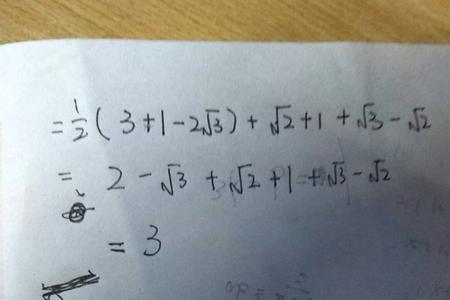 = 1/2 ( 3+1-2√3 ) + √2+1 + √3 - √2
= 2 - √3 + √2 +1 + √3 - √2
= 3